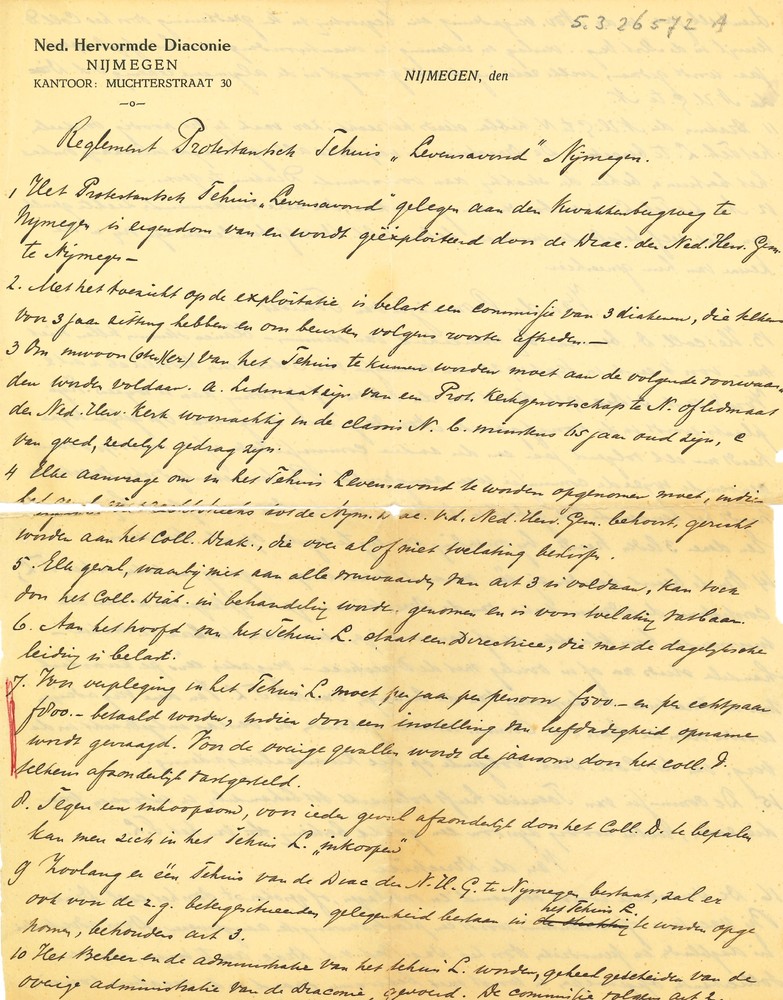 5.3.26572 A
Ned. Hervormde Diaconie
NIJMEGEN
KANTOOR: MUCHTERSTRAAT 30
—o—
NIJMEGEN, den
Reglement Protestantsch Tehuis „Levensavond" Nijmegen.
1 Het Protestantsch Tehuis „Levensavond" gelegen aan den Kwakkenbergweg te
Nijmegen is eigendom van en wordt geëxploiteerd door de Diac. der Ned. Herv. Gem.
te Nijmegen —
2. Met het toezicht op de exploitatie is belast een commissie van 3 diakenen, die telkens
voor 3 jaar zitting hebben en om beurten volgens rooster aftreden. —
3 Om inwoon(ster)(er) van het Tehuis te kunnen worden moet aan de volgende voorwaar-
den worden voldaan. a. Lidmaat zijn van een Prot. Kerkgenootschap te N. of lidmaat
der Ned. Herv. Kerk woonachtig in de classis N. b. minstens 65 jaar oud zijn, c
van goed, zedelijk gedrag zijn.
4 Elke aanvrage om in het Tehuis Levensavond te worden opgenomen moet, indien
het geval tot de Nijm. Diac. v.d. Ned. Herv. Gem. behoort, gericht
worden aan het Coll. Diak., die over al of niet toelating beslist.
5. Elk geval, waarbij niet aan alle voorwaarden van art 3 is voldaan, kan toch
door het Coll. Diak. in behandeling worden genomen en is voor toelating vatbaar.
6. Aan het hoofd van het Tehuis L. staat een Directrice, die met de dagelijksche
leiding is belast.
7. Voor verpleging in het Tehuis L. moet per jaar per persoon f500.— en per echtpaar
f800.— betaald worden, indien door een instelling van liefdadigheid opname
wordt gevraagd. Voor de overige gevallen wordt de jaarsom door het coll. D.
telkens afzonderlijk vastgesteld.
8. Tegen een inkoopsom, voor ieder geval afzonderlijk door het Coll. D. te bepalen
kan men zich in het Tehuis L. „inkoopen"
9 Zoolang er één Tehuis van de Diac der N.H.G. te Nijmegen bestaat, zal er
ook voor de z.g. betergesitueerden gelegenheid bestaan in het Tehuis L. te worden opge
nomen, behoudens art 3.
10 Het Beheer en de administratie van het tehuis L. worden, geheel gescheiden van de
overige administratie van de Diaconie, gevoerd. De commissie volgens art 2